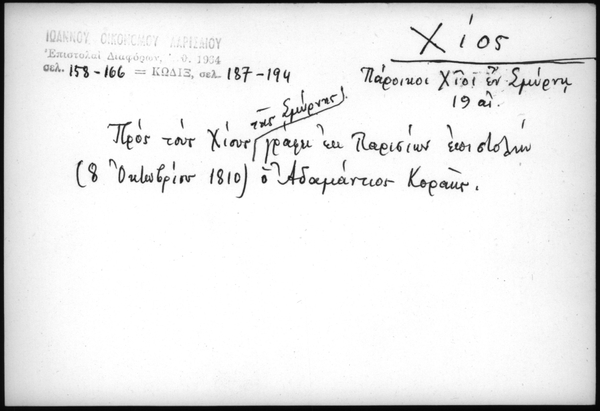 ΙΩΑΝΝΟΥ ΟΙΚΟΝΟΜΟΥ ΛΑΡΙΣΑΙΟΥ
Ἐπιστολαὶ Διαφόρων, θ. 1964
σελ. 158-166 = ΚΩΔΙΞ, σελ. 187-194
Χίος
Πάροικοι Χῖοι ἐν Σμύρνῃ
19 αἰ.
τῆς Σμύρνης
Πρὸς τοὺς Χίους γράφει ἐκ Παρισίων ἐπιστολὴν
(8 Ὀκτωβρίου 1810) ὁ Ἀδαμάντιος Κοραῆς.